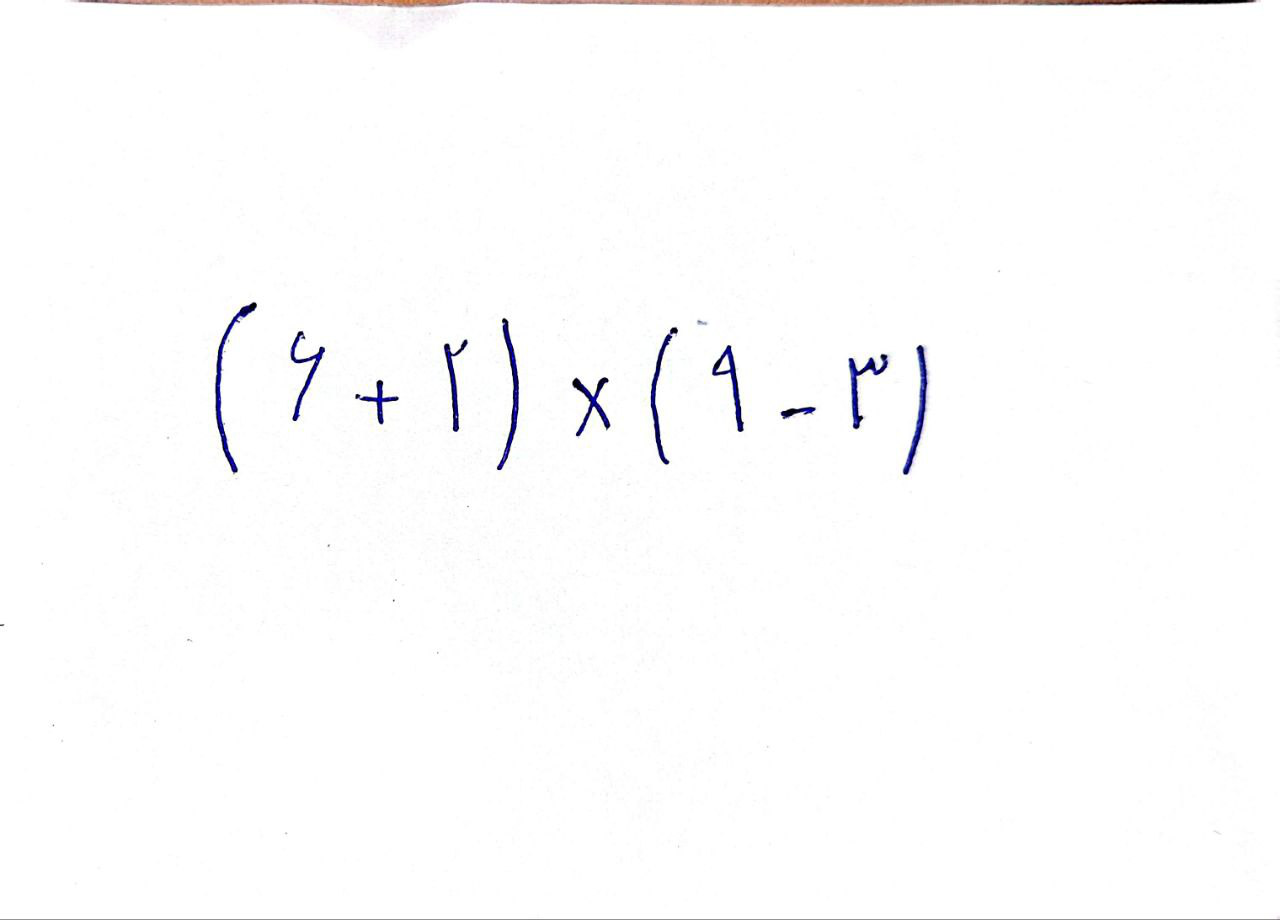 (۶ + ۲) × (۹ - ۳)